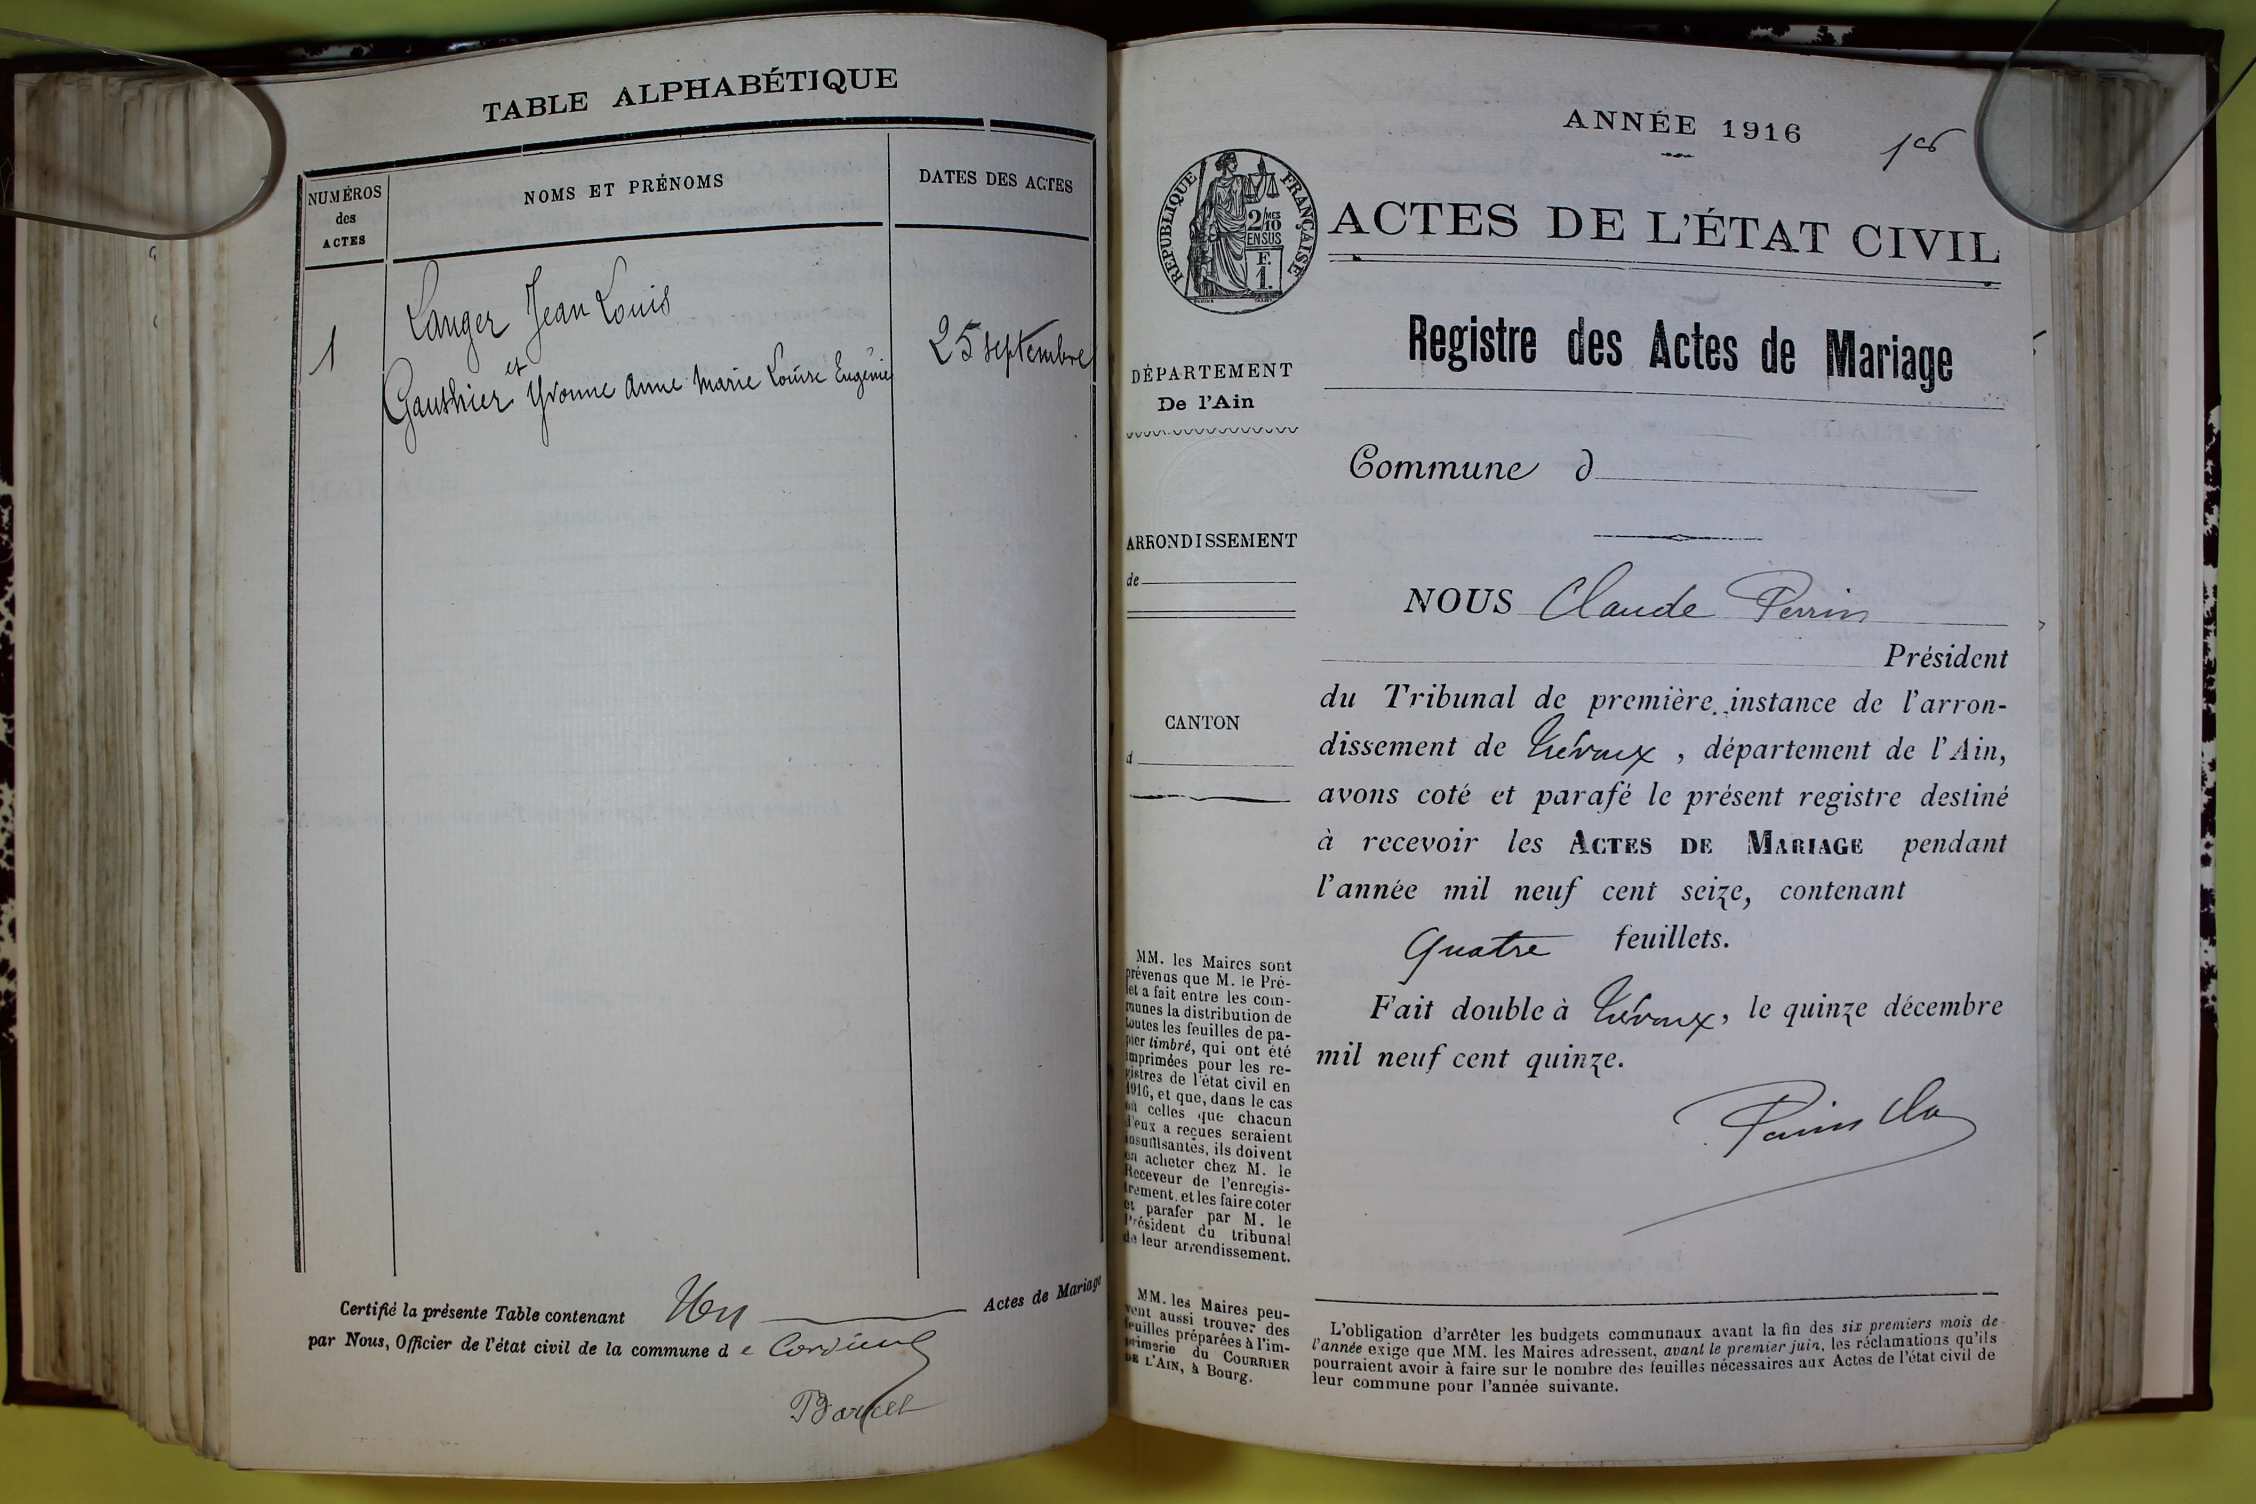 TABLE ALPHABÉTIQUE
NUMÉROS
des
ACTES
NOMS ET PRÉNOMS
DATES DES ACTES
1
Langer Jean Louis
et
Gauthier Yvonne Anne Marie Louise Eugénie
25 septembre
Certifié la présente Table contenant Un Actes de Mariage
par Nous, Officier de l'état civil de la commune de
ANNÉE 1916
1er
RÉPUBLIQUE FRANÇAISE
2/10 MES
EN SUS
F.
1.
ACTES DE L'ÉTAT CIVIL
Registre des Actes de Mariage
DÉPARTEMENT
De l'Ain
Commune d
ARRONDISSEMENT
de
NOUS Claude Perrin
Président
du Tribunal de première instance de l'arron-
CANTON
d
dissement de Trévoux, département de l'Ain,
avons coté et parafé le présent registre destiné
à recevoir les ACTES DE MARIAGE pendant
l'année mil neuf cent seize, contenant
quatre feuillets.
Fait double à Trévoux, le quinze décembre
mil neuf cent quinze.
Perrin Cla
MM. les Maires sont
prévenus que M. le Pré-
fet a fait entre les com-
munes la distribution de
toutes les feuilles de pa-
pier timbré, qui ont été
imprimées pour les re-
gistres de l'état civil en
1916, et que, dans le cas
où celles que chacun
d'eux a reçues seraient
insuffisantes, ils doivent
en acheter chez M. le
Receveur de l'enregis-
trement, et les faire coter
et parafer par M. le
Président du tribunal
de leur arrondissement.
MM. les Maires peu-
vent aussi trouver des
feuilles préparées à l'im-
primerie du COURRIER
DE L'AIN, à Bourg.
L'obligation d'arrêter les budgets communaux avant la fin des six premiers mois de
l'année exige que MM. les Maires adressent, avant le premier juin, les réclamations qu'ils
pourraient avoir à faire sur le nombre des feuilles nécessaires aux Actes de l'état civil de
leur commune pour l'année suivante.